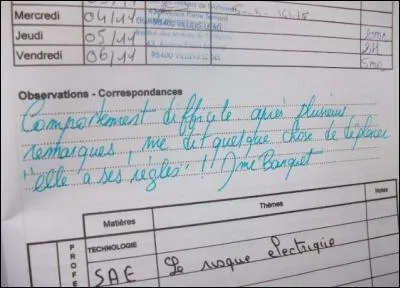 Mercredi 04/11
Jeudi 05/11
Vendredi 06/11
95400 VILLIERS LE BEL
Observations - Correspondances
Comportement difficile après plusieurs
remarques, me dit quelque chose de déplacer
"elle a ses règles"!! Mme Banquet
Matières Thèmes Notes
PROFE
TECHNOLOGIE
SAE Le risque electrique